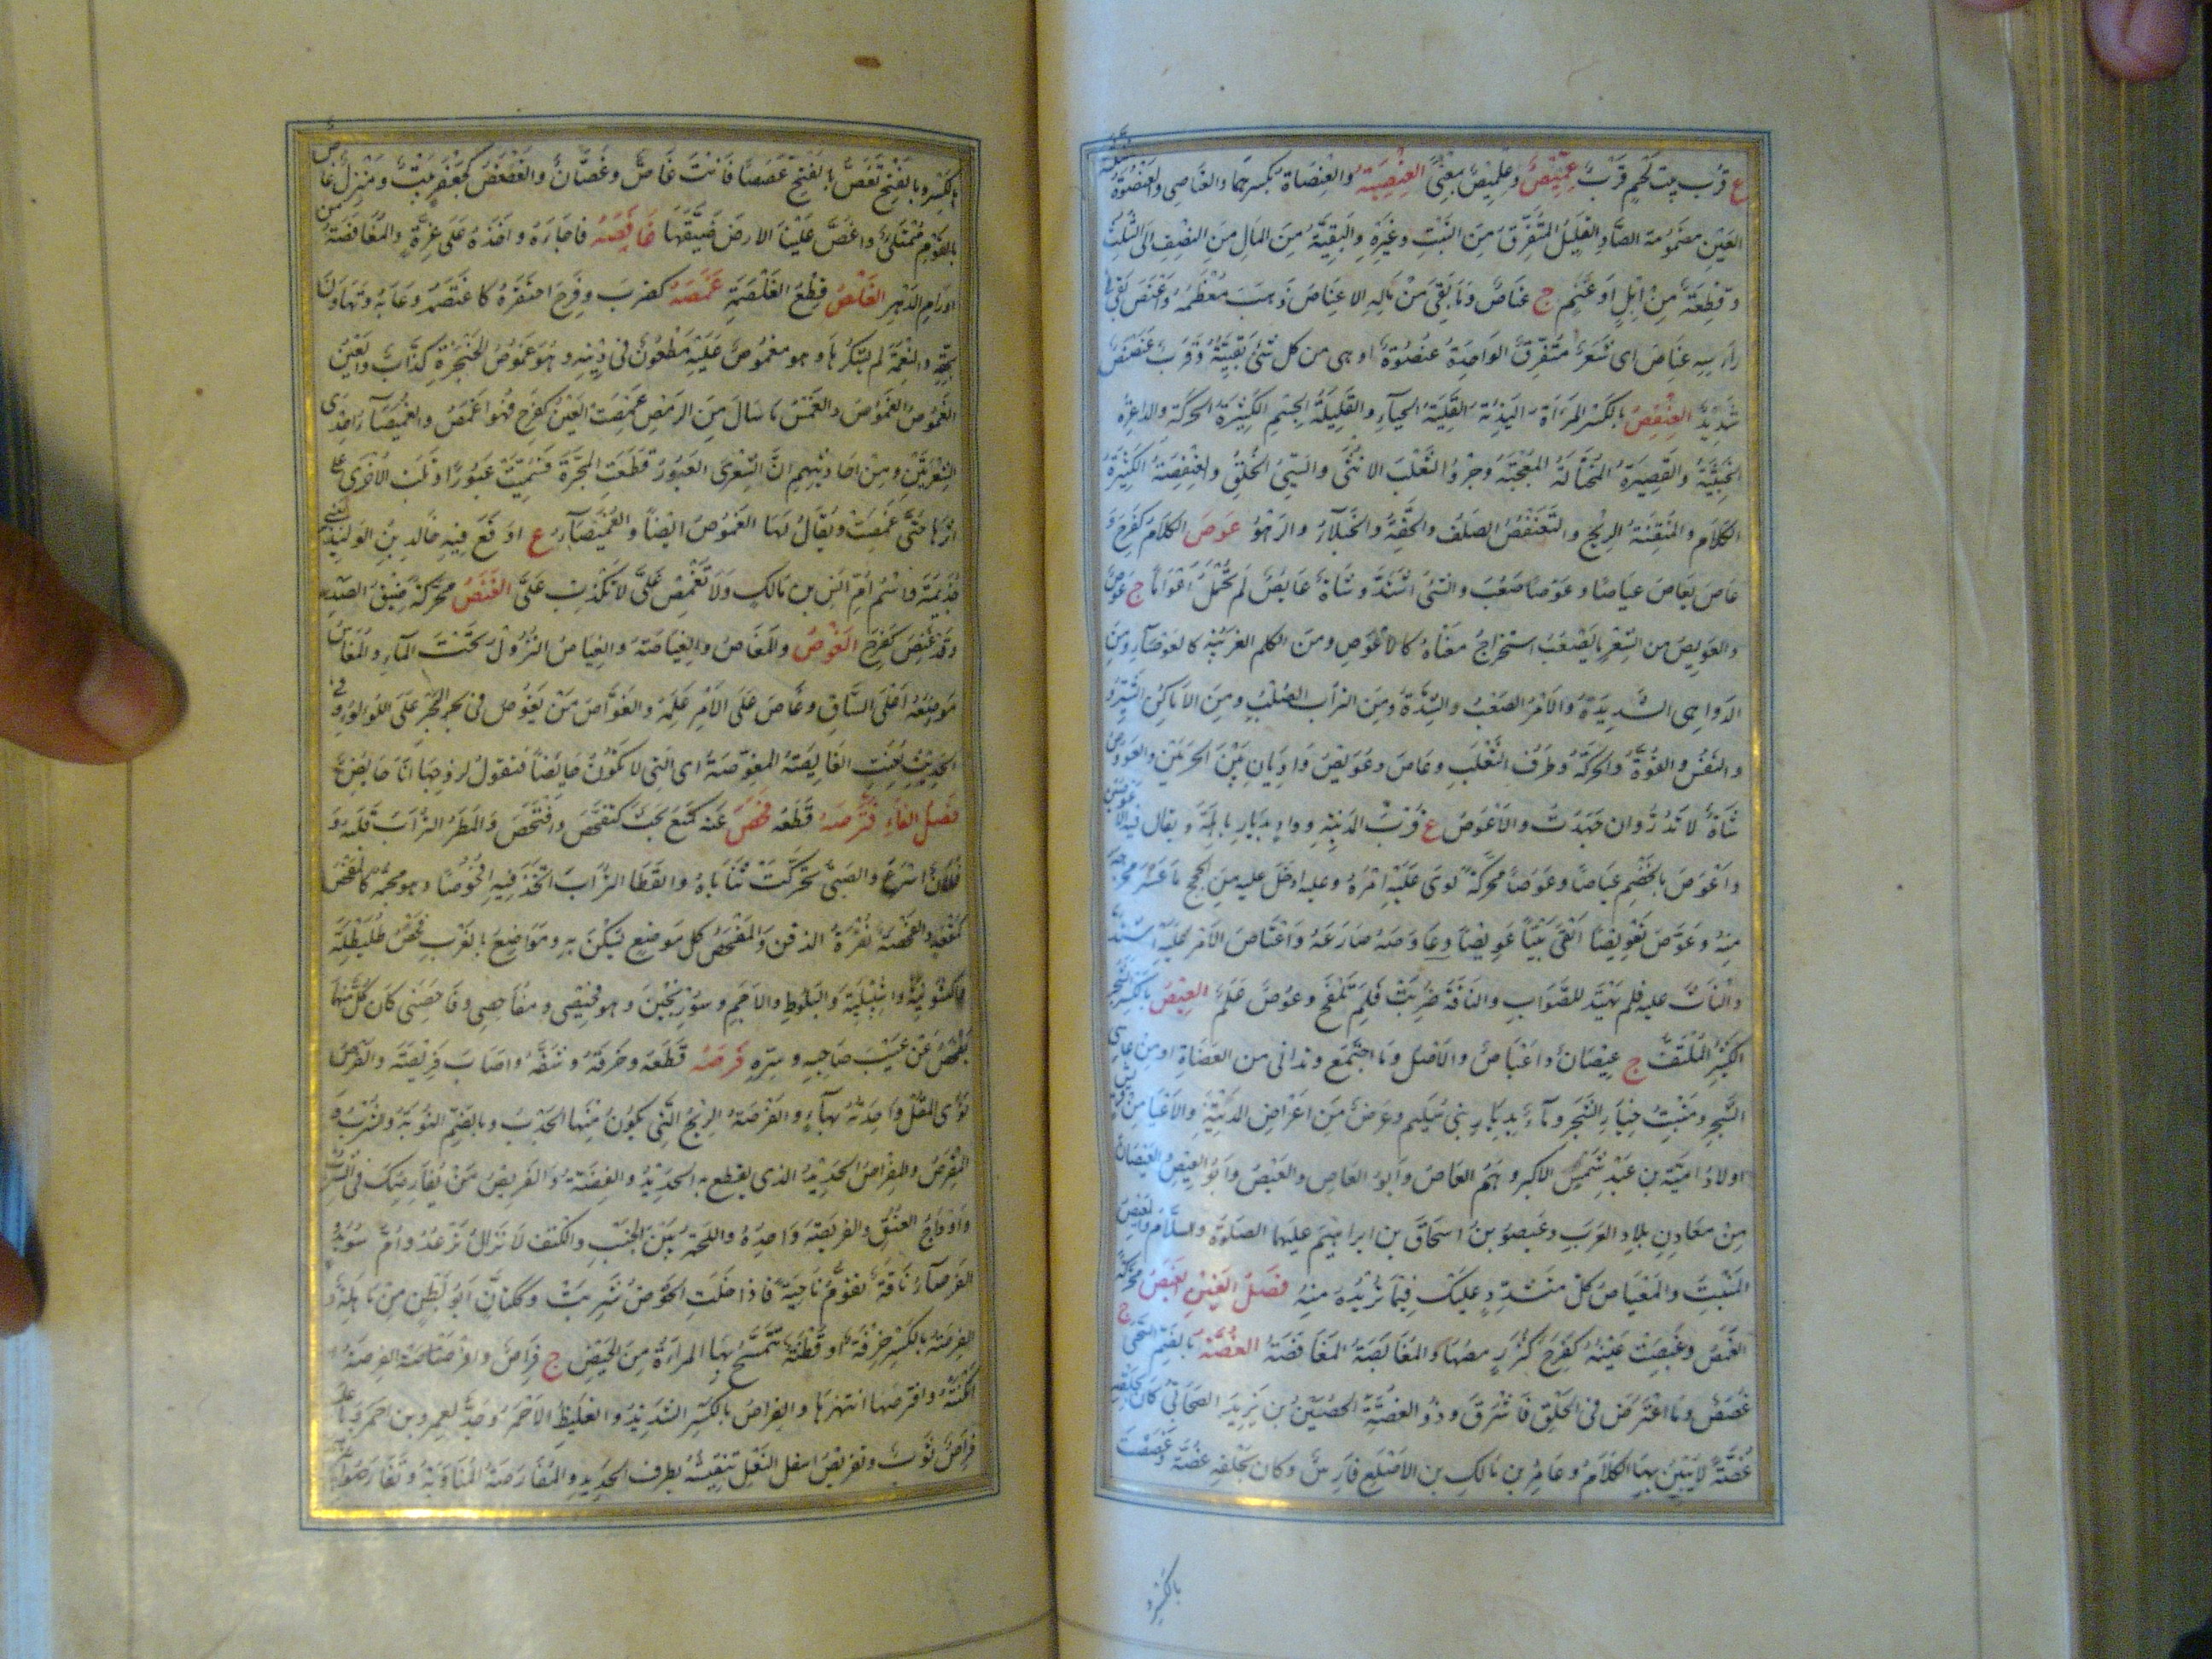 ع قرب بيت لحم قَرَبٌ عِمِّيصٌ وعِمْلِيصٌ بمعنًى العِنْصِيَةُ والعِنْصَاةُ بكسرهما والعَنَاصِي والعَنْصُوَةُ مثلثة
العين مضمومة الصاد القليل المتفرق من النبت وغيره والبقية من المال من النصف الى الثلث
وقطعة من ابل او غنم ج عناص وما بقي من ماله الا عناص ذهب معظمه واعنص بقي في
راسه عناص اى شعر متفرق الواحدة عنصوة او هى من كل شئ بقيته وقرب عنصنص
شديد العِنْفِصُ بالكسر المرأة البذية القليلة الحياء والقليلة الجسم الكثيرة الحركة والداعرة
الخبيثة والقصيرة المختالة المعجبة وجرو الثعلب الانثى والسيئ الخلق والعنفصة الكثيرة
الكلام والمنتنة الريح والتعنفص الصلف والخفة والخيلاء والزهو عَوِصَ الكلام كفرح و
عاص يعاص عياصا وعوصا صعب والشئ اشتد وشاة عائص لم تحمل اعواما ج عوص
والعويص من الشعر ما يصعب استخراج معناه كالاعوص ومن الكلم الغريبة كالعوصاء ومن
الدواهى الشديدة والامر الصعب والشدة ومن التراب الصلب ومن الاماكن الشئز و
والنفس والقوة والحركة وطرف الثعلب وعاص وعويص واديان بين الحرمين والعووص
شاة لا تدر وان جهدت والاعوص ع قرب المدينة وواد بديار باهلة ويقال فيه الاعوصين
واعوص بالخصم عياصا وعوصا محركة لوى عليه امره وعليه ادخل عليه من الحجج ما عسر مخرجه
منه وعوص تعويصا القى بيتا عويصا وعاوصه صارعه واعتاص الامر عليه اشتد
والتاث عليه فلم يهتد للصواب والناقة ضربت فلم تلقح وعوص علم العِيصُ بالكسر الشجر
الكثير الملتف ج عيصان واعياص والاصل وما اجتمع وتدانى من العضاه او من عاسى
الشجر ومنبت خيار الشجر وماء بديار بنى سليم وعرض من اعراض المدينة والاعياص من قريش
اولاد امية بن عبد شمس الاكبر وهم العاص وابو العاص والعيص وابو العيص والعيصان
من معادن بلاد العرب وعيصو بن اسحاق بن ابراهيم عليهما الصلوة والسلام والعيص
المنبت والمعياص كل متشدد عليك فيما تريده منه فصل الغين الغَبَصُ محركة
الغمص وغبصت عينه كفرح كثر رمصها والمغابصة المغافصة الغُصَّةُ بالضم الشجى ج
غصص وما اعترض فى الحلق فاشرق وذو الغصة الحصين بن يزيد الصحابي كان بحلقه
غصة لا يبين بها الكلام وعامر بن مالك بن الاصلع فارس وكان بحلقه غصة وغصصت
بالكسر و
بالكسر وبالفتح تغص بالفتح غصصا فانت غاص وغصان والغصغص كجعفر نبت ومنزل غاص
بالقوم ممتلئ واغص علينا الارض ضيقها غَافَصَهُ فاجأه واخذه على غرة والغافصة من
اوازم الدهر الغَلْصُ قطع الغلصمة غَمَصَهُ كضرب وفرح احتقره كاغتمصه وعابه وتهاون
بحقه والنعمة لم يشكرها وهو مغموص عليه مطعون فى دينه وهو غموص الحنجرة كذاب واليمين
الغموص الغموس والغمص ما سال من الرمص غمصت العين كفرح فهو اغمص والغميصاء احدى
الشعريين ومن احاديثهم ان الشعرى العبور قطعت المجرة فسميت عبورا وبكت الاخرى على
اثرها حتى غمصت ويقال لها الغموص ايضا والغميصاء ع اوقع فيه خالد بن الوليد ببنى
جذيمة واسم ام انس بن مالك ولا تغمص على لا تكذب على الغَنَصُ محركة ضيق الصدر
وقد غنص كفرح الغَوْصُ والمغاص والغياصة والغياص النزول تحت الماء والمغاص
موضعه اعلى الساق وغاص على الامر علمه والغواص من يغوص فى البحر على اللؤلؤ وفى
الحديث لعنت الغائصة المغوصة اى التى لا تكون حائضا فتقول لزوجها انا حائض
فصل الفاء فَتَرَصَهُ قطعه فَحَصَ عنه كمنع بحث كتفحص وافتحص والمطر التراب قلبه و
فلان اسرع والصبى تحركت ثناياه والقطا التراب اتخذ فيه افحوصا وهو مجثمه كالمفحص
كمقعد والفحصة نقرة الذقن والفحص كل موضع يسكن به ومواضع بالغرب فحص طليطلة
واكشونية واشبيلية والبلوط والاجم وسورنجين وهو فحيصى ومفاحصى وفاحصنى كان كلا منهما
يفحص عن عيب صاحبه وسره فَرَصَهُ قطعه وخرقه وشقه واصاب فريصته والفرص
نوى المقل واحدته بهاء والفرصة الريح التى يكون منها الحدب وبالضم النوبة والشرب و
المفرص والمفراص الحديد الذى يقطع به الحديد والفضة والفريص من يفارصك فى الشرب
واوداج العنق والفريصة واحدة واللحمة بين الجنب والكتف لا تزال ترعد وام سويد
الفرصاء ناقة تقوم ناحية فاذا خلت الحوض شربت وككتان ابو بطن من باهلة و
الفرصة بالكسر خرقة او قطنة تتمسح بها المرأة من الحيض ج فراص وافرصته الفرصة
امكنته وافترصها انتهزها والفراص بالكسر الشديد والغليظ الاحمر وجد لعمرو بن احمر وما عليه
فراص ثوب وتفريص اسفل النعل تنقيشه بطرف الحديد والمفارصة المناوبة وتفارصوا بئرهم